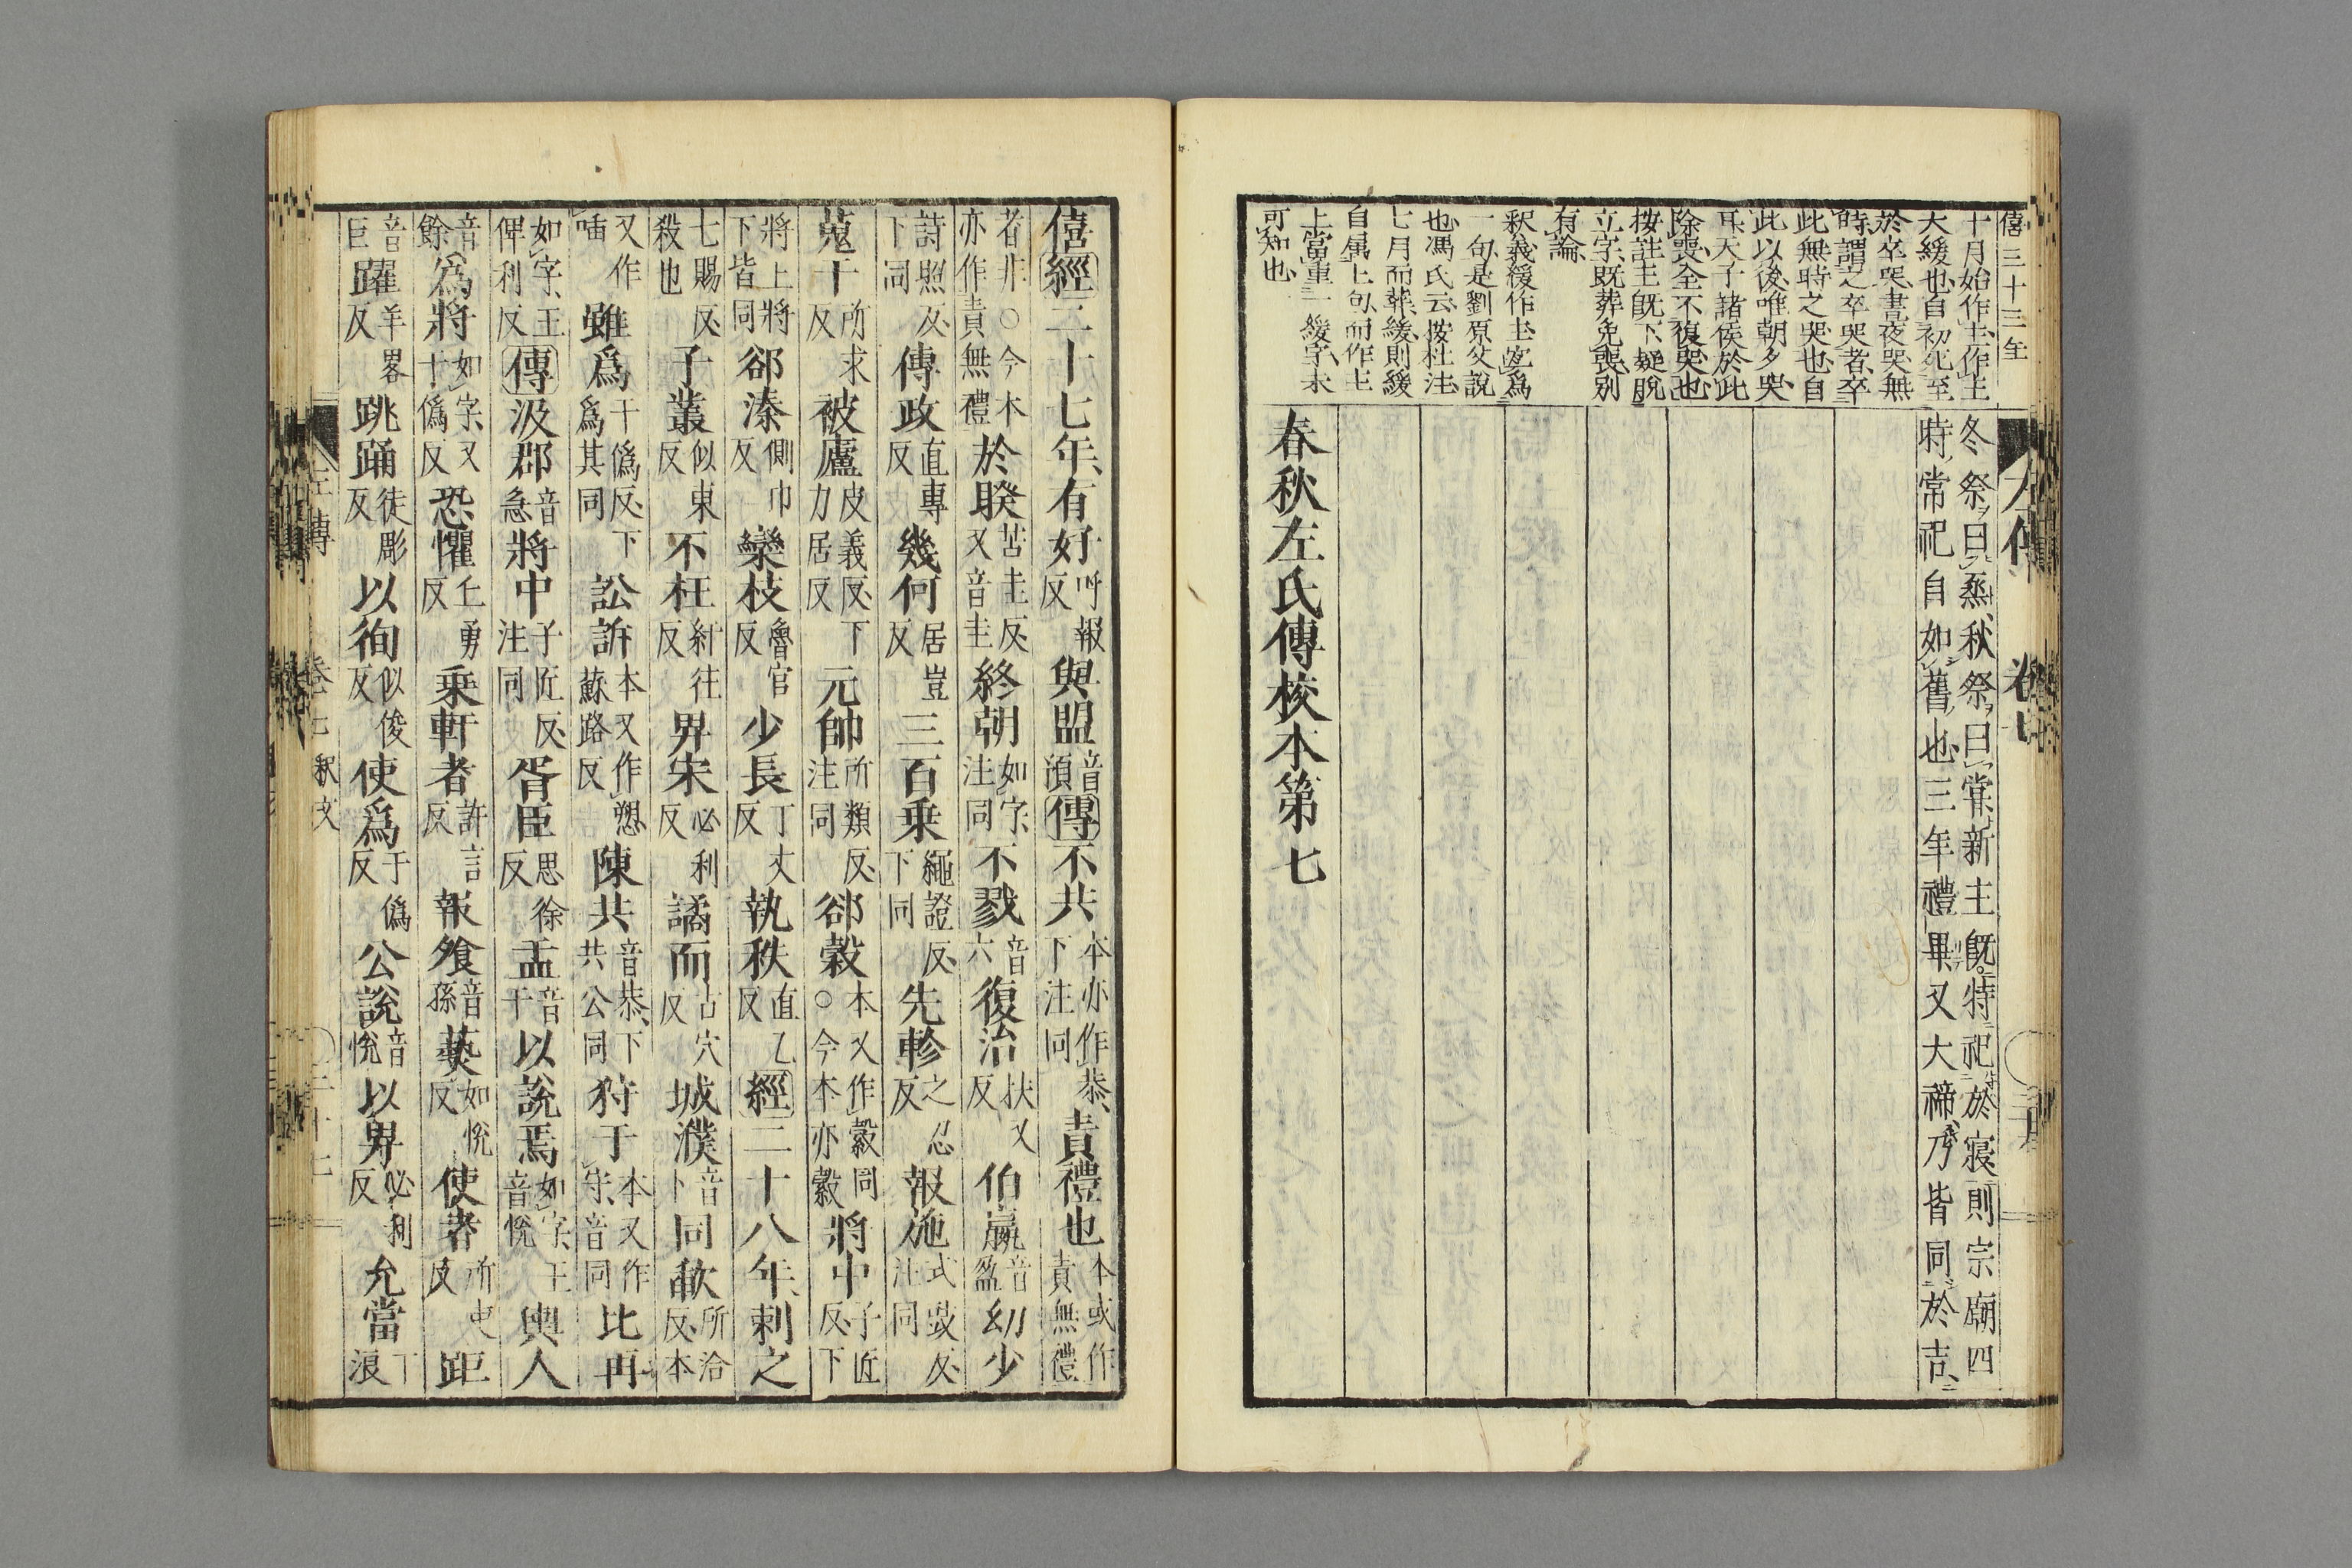 僖三十三年
十月始作主作主
大緩也自初死至
於卒哭晝夜哭無
時謂之卒哭者卒
此無時之哭也自
此以後唯朝夕哭
耳天子諸侯於此
除喪全不復哭也
按註主既下疑脫
立字既葬免喪別
有論
釈義緩作主宜爲
一句是劉原父說
也馮氏云按杜注
七月而葬緩則緩
自属上句而作主
上當重一緩字未
可知也
冬祭曰烝秋祭曰嘗新主既特祀於寢則宗廟四
時常祀自如舊也三年禮畢又大禘乃皆同於吉
春秋左氏傳挍本第七
僖經二十七年有好呼報反與盟音預傳不共本亦作恭下注同責禮也本或作責無禮
者非○今本亦作責無禮於睽苦圭反又音圭終朝如字注同不戮音六復治扶又反伯嬴音盈幼少
詩照反下同傳政直專反幾何居豈反三百乗繩證反下同先軫之忍反報施式豉反注同
蒐于所求反被廬皮義反下力居反元帥所類反注同郤縠本又作縠同○今本亦縠將中子匠反下
將上將下皆同郤溱側巾反欒枝魯官反少長丁丈反執秩直乙反經二十八年刺之
七賜反殺也子叢似東反不枉紆往反畀宋必利反譎而古穴反城濮音卜同歃所洽反本
又作唼雖爲于僞反下爲其同訟訴本又作愬蘇路反陳共音恭下共公同狩于本又作守音同比再
如字王俾利反傳汲郡音急將中子匠反注同胥臣思徐反盂音于以說焉如字王音悅輿人
音餘爲將如字又于僞反恐懼丘勇反乗軒者許言反報飧音孫爇如悅反使者所吏反距
音巨躍羊畧反跳踊徒彫反以徇似俊反使爲于僞反公說音悅以畀必利反允當丁浪